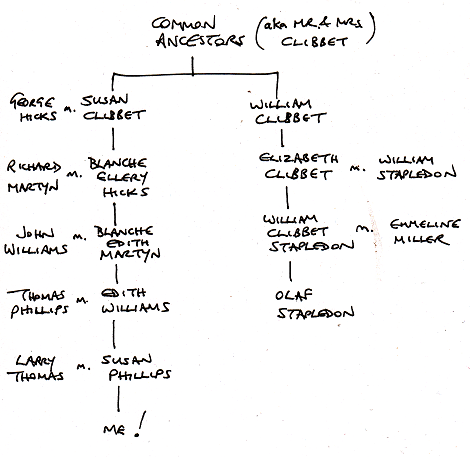 COMMON (aka MR. & MRS
ANCESTORS CLIBBET)
GEORGE m. SUSAN WILLIAM
HICKS CLIBBET CLIBBET
RICHARD m. BLANCHE ELIZABETH m. WILLIAM
MARTYN ELLERY CLIBBET STAPLEDON
HICKS
JOHN m. BLANCHE WILLIAM m. EMMELINE
WILLIAMS EDITH CLIBBET MILLER
MARTYN STAPLEDON
THOMAS m. EDITH OLAF
PHILLIPS WILLIAMS STAPLEDON
LARRY m. SUSAN
THOMAS PHILLIPS
ME!